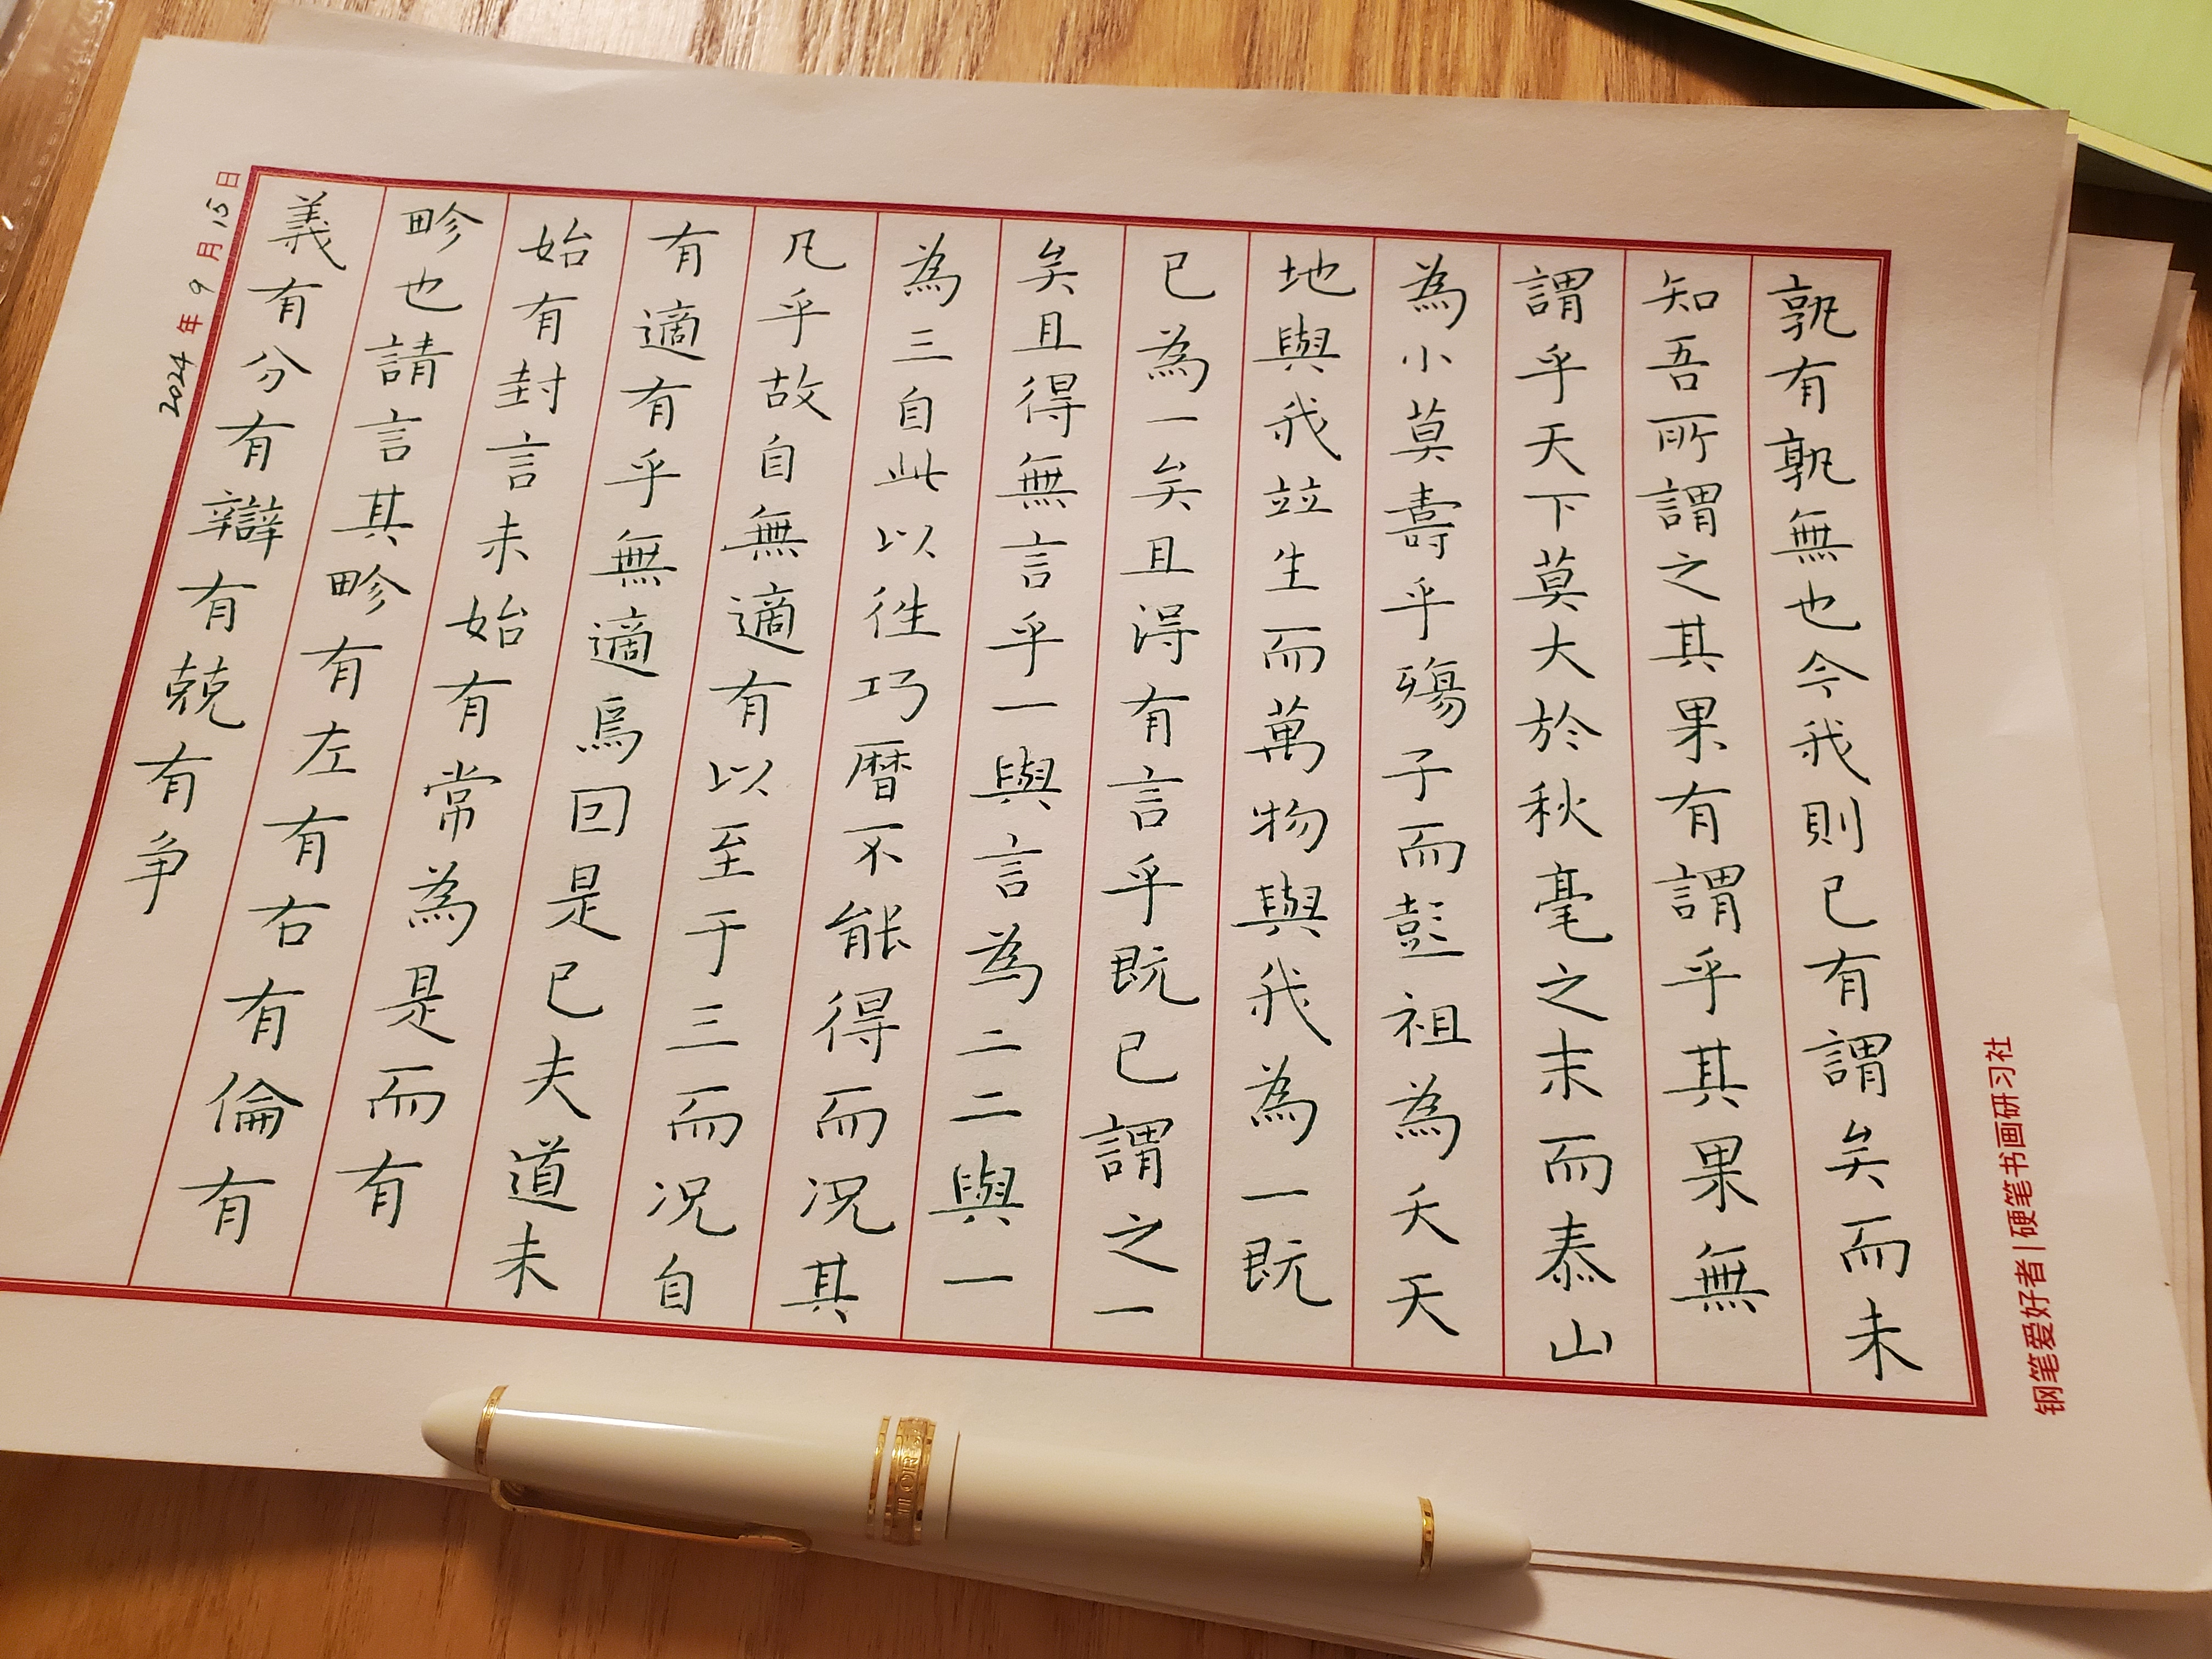 孰有孰無也今我則已有謂矣而未
知吾所謂之其果有謂乎其果無
謂乎天下莫大於秋毫之末而泰山
為小莫壽乎殤子而彭祖為夭天
地與我竝生而萬物與我為一既
已為一矣且得有言乎既已謂之一
矣且得無言乎一與言為二二與一
為三自此以往巧曆不能得而况其
凡乎故自無適有以至于三而况自
有適有乎無適焉因是已夫道未
始有封言未始有常為是而有
畛也請言其畛有左有右有倫有
義有分有辯有競有争
2024年9月15日
钢笔爱好者|硬笔书画研习社